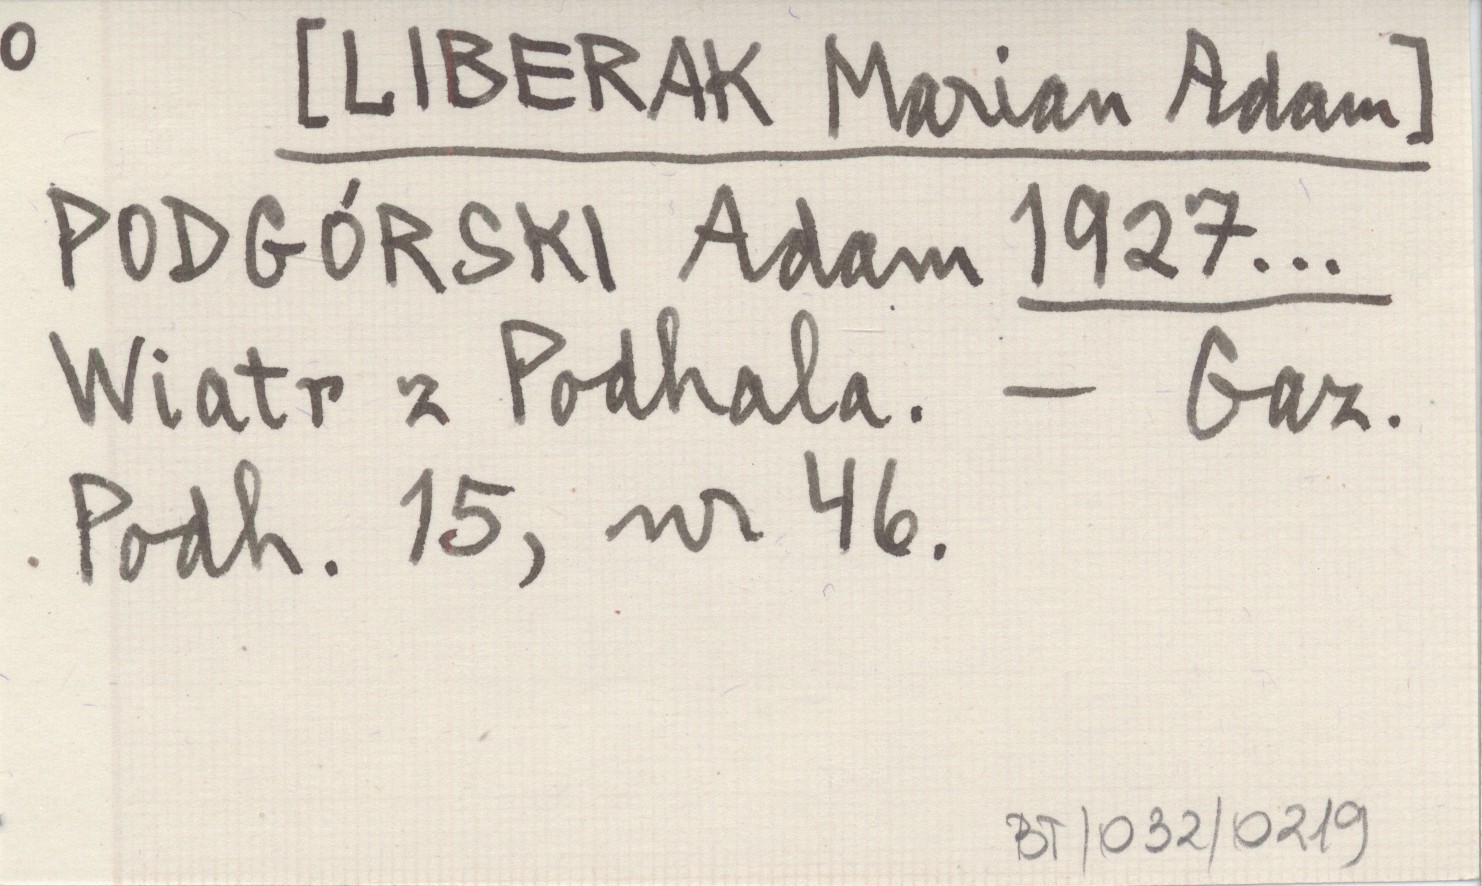 o [LIBERAK Marian Adam]
PODGÓRSKI Adam 1927...
Wiatr z Podhala. – Gaz.
Podh. 15, nr 46.
BT/032/0219